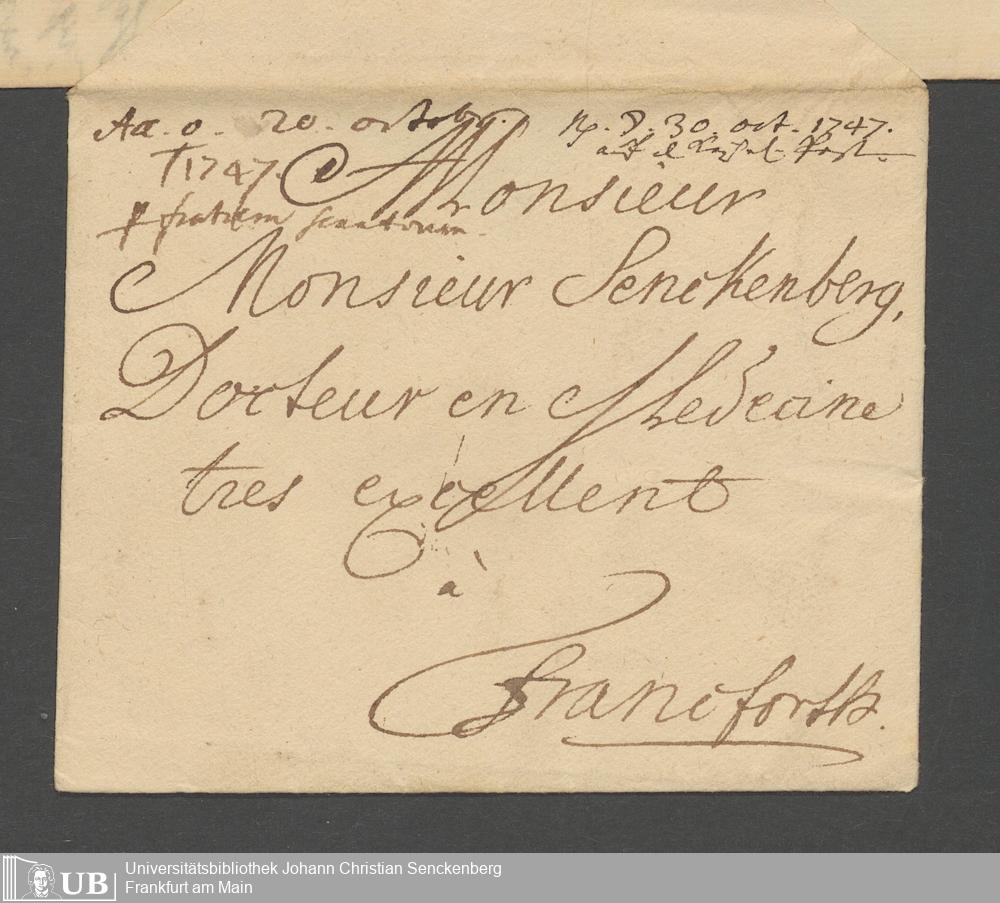 Acc. 0. 20. octobr.
1747.
p fratrem senatorem.
Rp. 30. oct. 1747.
auf d Post.
Monsieur
Monsieur Senckenberg,
Docteur en Medecine
tres excellent
à
Francforth.
UB
Universitätsbibliothek Johann Christian Senckenberg
Frankfurt am Main